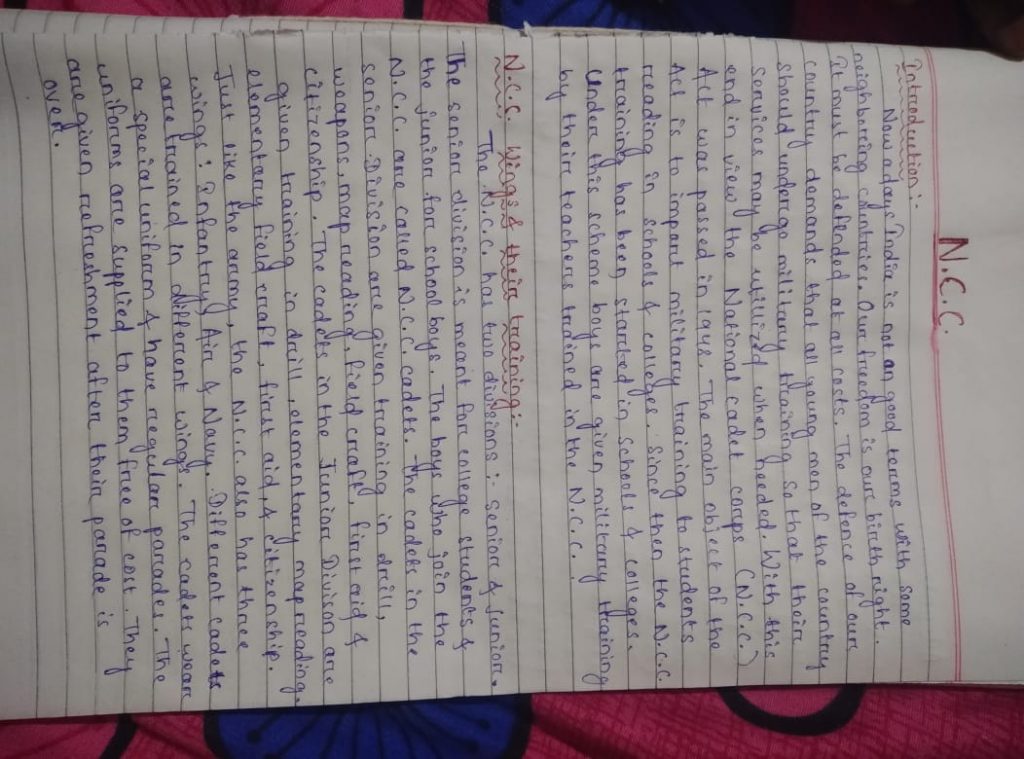 N.C.C.
Introduction :-
Now a days India is not an good terms with some
neighbouring countries. Our freedom is our birth right.
It must be defended at all costs. The defence of our
country demands that all young men of the country
should undergo military training so that their
services may be utilized when needed. With this
end in view the National cadet corps (N.C.C.)
Act was passed in 1948. The main object of the
Act is to impart military training to students
reading in schools & colleges. Since then the N.C.C
training has been started in schools & colleges.
Under this scheme boys are given military training
by their teachers trained in the N.C.C.
N.C.C. Wings & their training:-
The N.C.C. has two divisions :- Senior & Junior.
The senior division is meant for college students &
the junior for school boys. The boys who join the
N.C.C. are called N.C.C. cadets. The cadets in the
senior Division are given training in drill,
weapons, map reading, field craft, first aid &
citizenship. The cadets in the Junior Divison are
given training in drill, elementary map reading,
elementary field craft, first aid, & citizenship.
Just like the army, the N.C.C. also has three
wings : Infantry, Air & Navy. Different cadets
are trained in different wings. The cadets wear
a special uniform & have regular parades. The
uniforms are supplied to them free of cost. They
are given refreshment after their parade is
over.